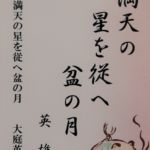 満天の
星を従へ
盆の月
英雄
満天の星を従へ盆の月
大庭英